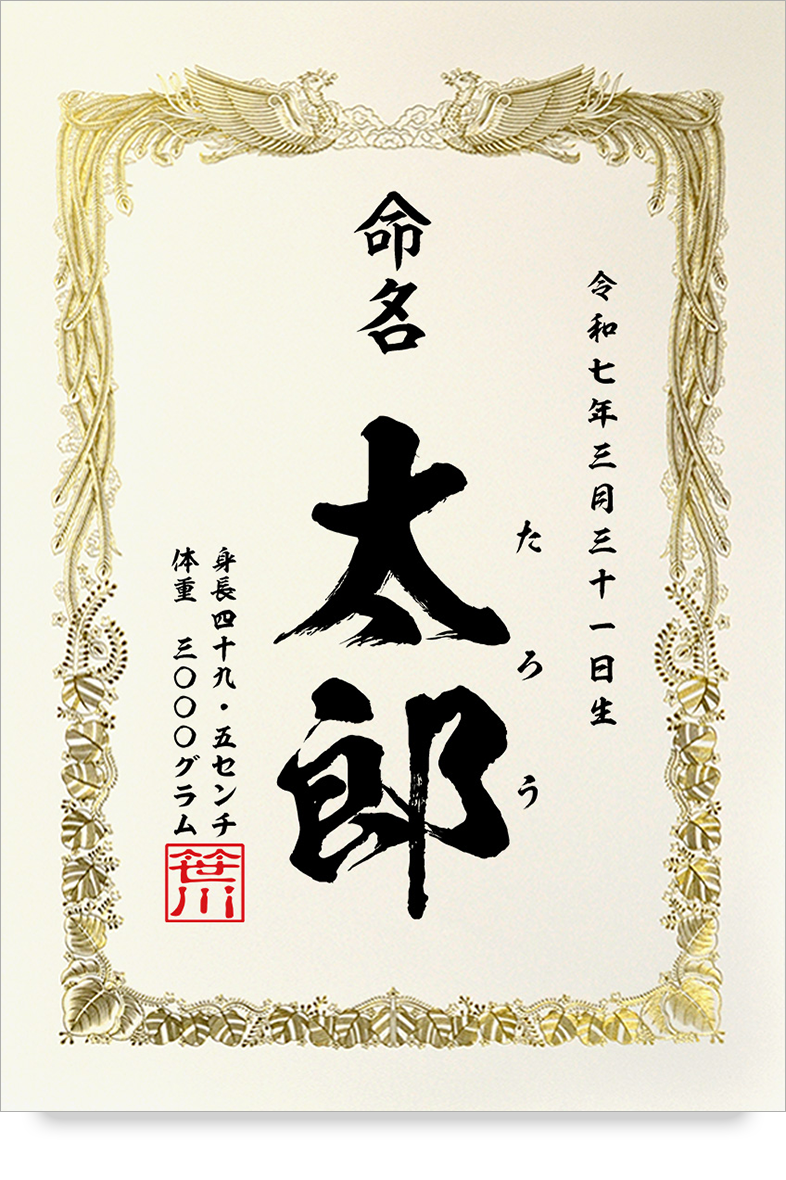 令和七年三月三十一日生
命名
太郎
たろう
身長四十九・五センチ
体重　三〇〇〇グラム
笹川